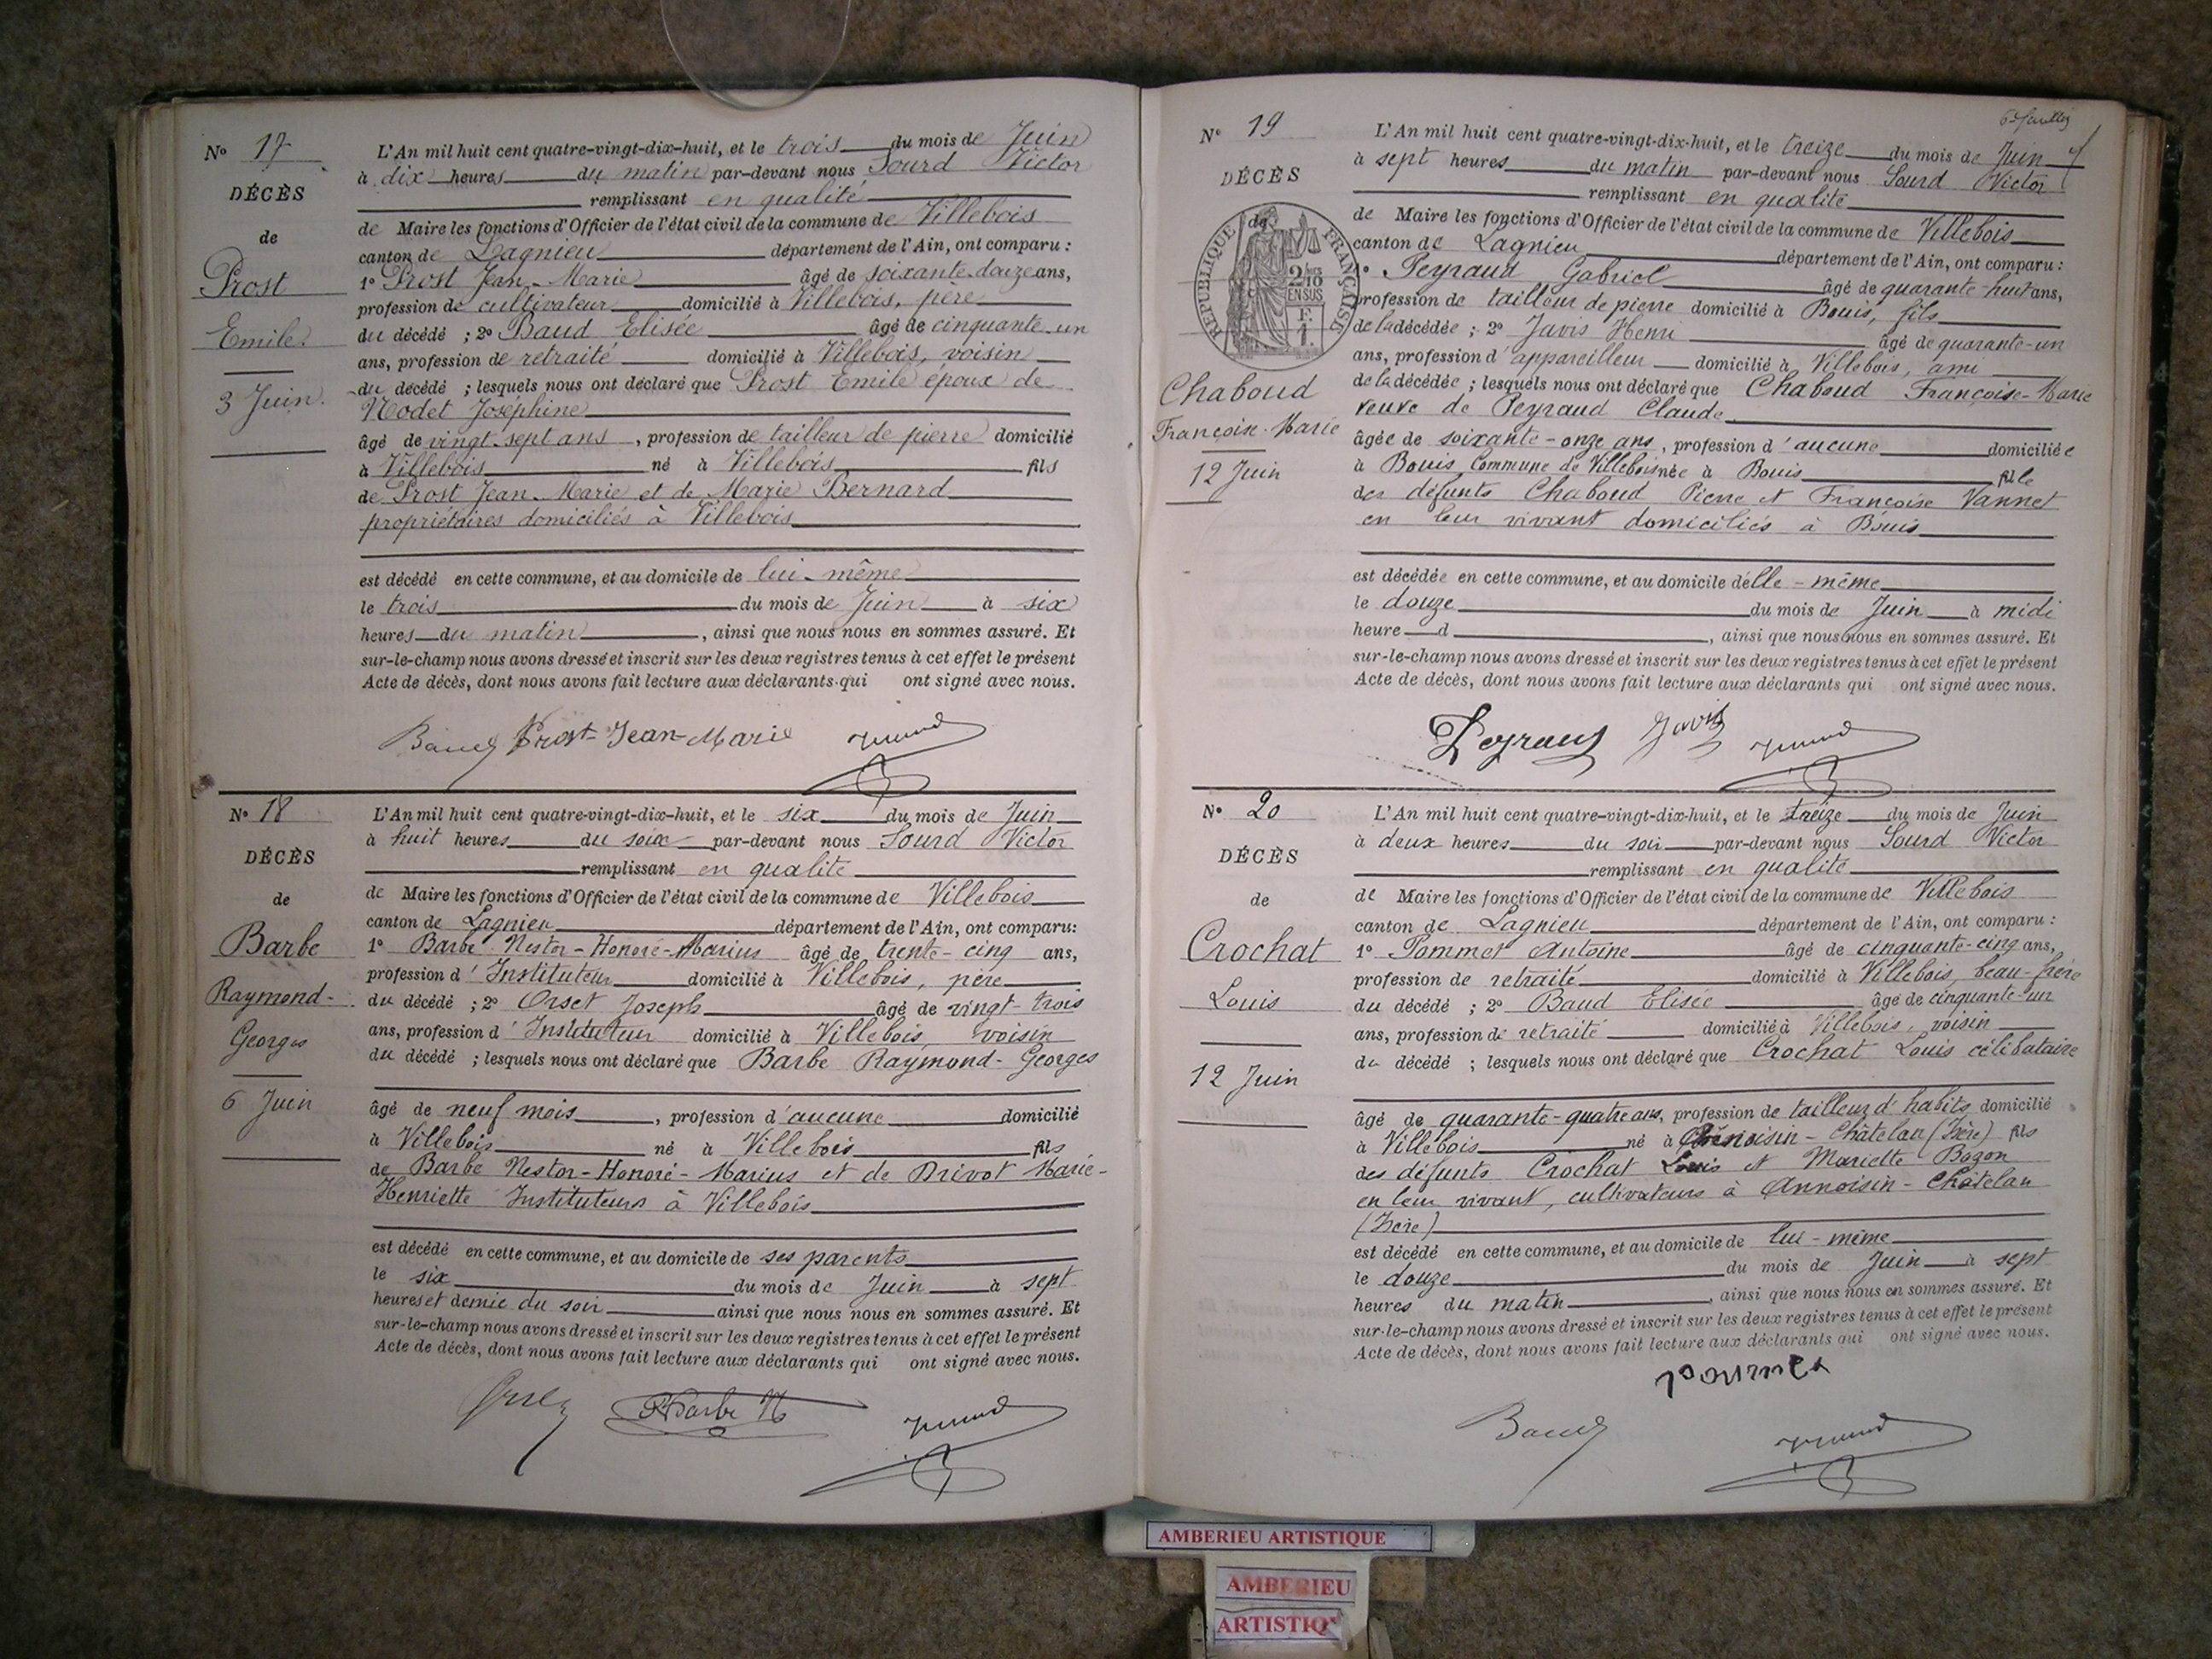 N° 17
DÉCÈS
de
Prost
Emile
3 Juin.
L'An mil huit cent quatre-vingt-dix-huit, et le trois du mois de Juin
à dix heures du matin par-devant nous Sourd Victor
remplissant en qualité
de Maire les fonctions d'Officier de l'état civil de la commune de Villebois
canton de Lagnieu département de l'Ain, ont comparu :
1° Prost Jean-Marie âgé de soixante-douze ans,
profession de cultivateur domicilié à Villebois, père
du décédé ; 2° Baud Elisée âgé de cinquante-un
ans, profession de retraité domicilié à Villebois, voisin
du décédé ; lesquels nous ont déclaré que Prost Emile époux de
Nodet Joséphine
âgé de vingt-sept ans, profession de tailleur de pierre domicilié
à Villebois né à Villebois fils
de Prost Jean-Marie et de Marie Bernard
propriétaires domiciliés à Villebois
est décédé en cette commune, et au domicile de lui-même
le trois du mois de Juin à six
heures du matin, ainsi que nous nous en sommes assuré. Et
sur-le-champ nous avons dressé et inscrit sur les deux registres tenus à cet effet le présent
Acte de décès, dont nous avons fait lecture aux déclarants qui ont signé avec nous.
Baud Prost Jean-Marie
N° 18
DÉCÈS
de
Barbe
Raymond-
Georges
6 Juin
L'An mil huit cent quatre-vingt-dix-huit, et le six du mois de Juin
à huit heures du soir par-devant nous Sourd Victor
remplissant en qualité
de Maire les fonctions d'Officier de l'état civil de la commune de Villebois
canton de Lagnieu département de l'Ain, ont comparu:
1° Barbe Nestor-Honoré-Marius âgé de trente-cinq ans,
profession d'Instituteur domicilié à Villebois, père
du décédé ; 2° Orset Joseph âgé de vingt-trois
ans, profession d'Instituteur domicilié à Villebois, voisin
du décédé ; lesquels nous ont déclaré que Barbe Raymond-Georges
âgé de neuf mois, profession d'aucune domicilié
à Villebois né à Villebois fils
de Barbe Nestor-Honoré-Marius et de Drivot Marie-
Henriette Instituteurs à Villebois
est décédé en cette commune, et au domicile de ses parents
le six du mois de Juin à sept
heures et demie du soir ainsi que nous nous en sommes assuré. Et
sur-le-champ nous avons dressé et inscrit sur les deux registres tenus à cet effet le présent
Acte de décès, dont nous avons fait lecture aux déclarants qui ont signé avec nous.
Barbe N
N° 19
DÉCÈS
de
RÉPUBLIQUE FRANÇAISE
2/10
EN SUS
F.
1.
Chaboud
Françoise-Marie
12 Juin
L'An mil huit cent quatre-vingt-dix-huit, et le treize du mois de Juin
à sept heures du matin par-devant nous Sourd Victor
remplissant en qualité
de Maire les fonctions d'Officier de l'état civil de la commune de Villebois
canton de Lagnieu département de l'Ain, ont comparu :
1° Peyraud Gabriel âgé de quarante-huit ans,
profession de tailleur de pierre domicilié à Bouis, fils
de la décédée ; 2° Javis Henri âgé de quarante-un
ans, profession d'appareilleur domicilié à Villebois, ami
de la décédée ; lesquels nous ont déclaré que Chaboud Françoise-Marie
veuve de Peyraud Claude
âgée de soixante-onze ans, profession d'aucune domiciliée
à Bouis Commune de Villebois née à Bouis fille
des défunts Chaboud Pierre et Françoise Vannet
en leur vivant domiciliés à Bouis
est décédée en cette commune, et au domicile d'elle-même
le douze du mois de Juin à midi
heure d, ainsi que nous nous en sommes assuré. Et
sur-le-champ nous avons dressé et inscrit sur les deux registres tenus à cet effet le présent
Acte de décès, dont nous avons fait lecture aux déclarants qui ont signé avec nous.
Peyraud Javis
N° 20
DÉCÈS
de
Crochat
Louis
12 Juin
L'An mil huit cent quatre-vingt-dix-huit, et le treize du mois de Juin
à deux heures du soir par-devant nous Sourd Victor
remplissant en qualité
de Maire les fonctions d'Officier de l'état civil de la commune de Villebois
canton de Lagnieu département de l'Ain, ont comparu :
1° Pommet Antoine âgé de cinquante-cinq ans,
profession de retraité domicilié à Villebois, beau-frère
du décédé ; 2° Baud Elisée âgé de cinquante-un
ans, profession de retraité domicilié à Villebois, voisin
du décédé ; lesquels nous ont déclaré que Crochat Louis célibataire
âgé de quarante-quatre ans, profession de tailleur d'habits domicilié
à Villebois né à Annoisin-Châtelan (Isère) fils
des défunts Crochat Louis et Mariette Bazon
en leur vivant, cultivateurs à Annoisin-Châtelan
(Isère)
est décédé en cette commune, et au domicile de lui-même
le douze du mois de Juin à sept
heures du matin, ainsi que nous nous en sommes assuré. Et
sur-le-champ nous avons dressé et inscrit sur les deux registres tenus à cet effet le présent
Acte de décès, dont nous avons fait lecture aux déclarants qui ont signé avec nous.
Baud
AMBERIEU ARTISTIQUE
AMBERIEU
ARTISTIQ